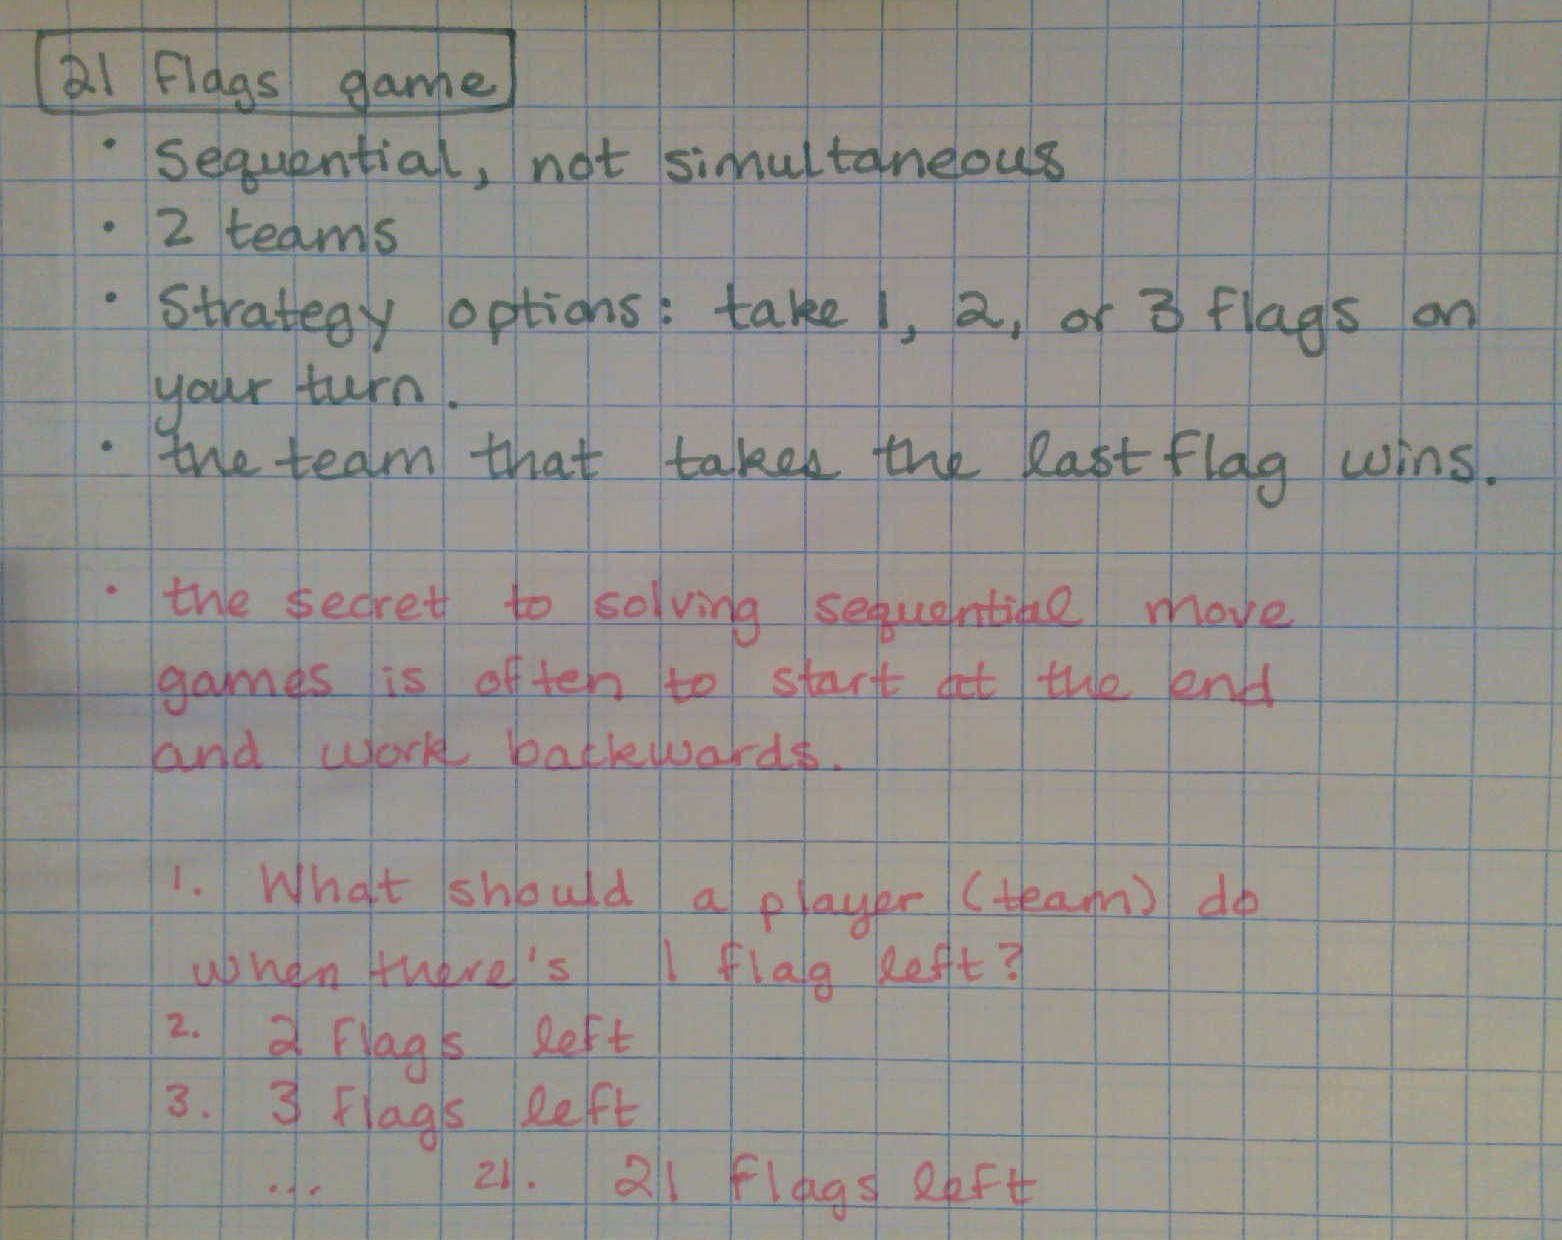 21 flags game
• Sequential, not simultaneous
• 2 teams
• Strategy options: take 1, 2, or 3 flags on
your turn.
• the team that takes the last flag wins.
• the secret to solving sequential move
games is often to start at the end
and work backwards.
1. What should a player (team) do
when there's 1 flag left?
2. 2 flags left
3. 3 flags left
... 21. 21 flags left